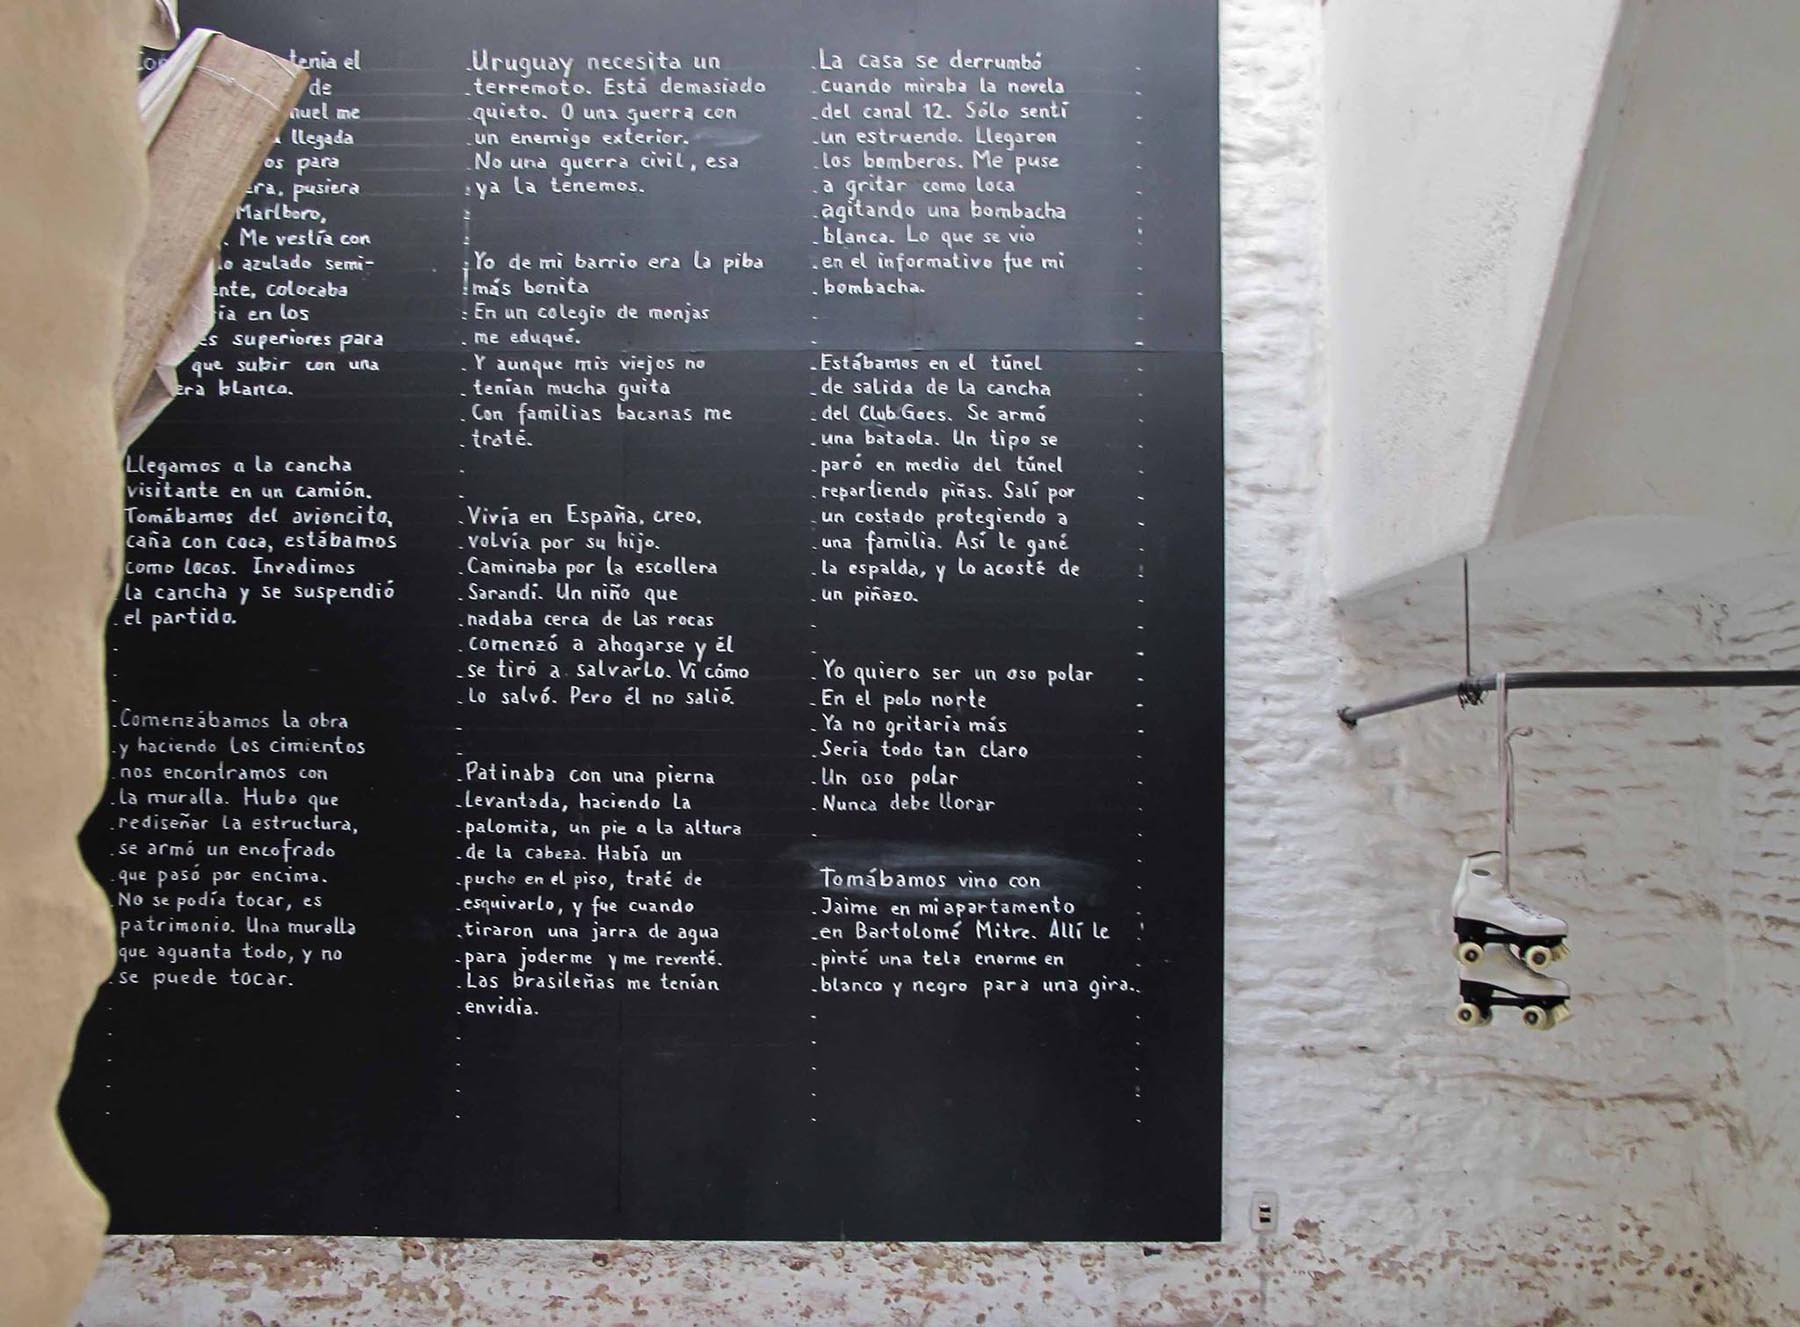 tenía el
de
me
llegada
para
pusiera
Marlboro,
Me vestía con
azulado semi-
colocaba
en los
superiores para
que subir con una
blanco.
Llegamos a la cancha
visitante en un camión.
Tomábamos del avioncito,
caña con coca, estábamos
como locos. Invadimos
la cancha y se suspendió
el partido.
Comenzábamos la obra
y haciendo los cimientos
nos encontramos con
la muralla. Hubo que
rediseñar la estructura,
se armó un encofrado
que pasó por encima.
No se podía tocar, es
patrimonio. Una muralla
que aguanta todo, y no
se puede tocar.
Uruguay necesita un
terremoto. Está demasiado
quieto. O una guerra con
un enemigo exterior.
No una guerra civil, esa
ya la tenemos.
Yo de mi barrio era la piba
más bonita
En un colegio de monjas
me eduqué.
Y aunque mis viejos no
tenían mucha guita
Con familias bacanas me
traté.
Vivía en España, creo,
volvía por su hijo.
Caminaba por la escollera
Sarandí. Un niño que
nadaba cerca de las rocas
comenzó a ahogarse y él
se tiró a salvarlo. Vi cómo
lo salvó. Pero él no salió.
Patinaba con una pierna
levantada, haciendo la
palomita, un pie a la altura
de la cabeza. Había un
pucho en el piso, traté de
esquivarlo, y fue cuando
tiraron una jarra de agua
para joderme y me reventé.
Las brasileñas me tenían
envidia.
La casa se derrumbó
cuando miraba la novela
del canal 12. Sólo sentí
un estruendo. Llegaron
los bomberos. Me puse
a gritar como loca
agitando una bombacha
blanca. Lo que se vio
en el informativo fue mi
bombacha.
Estábamos en el túnel
de salida de la cancha
del Club Goes. Se armó
una bataola. Un tipo se
paró en medio del túnel
repartiendo piñas. Salí por
un costado protegiendo a
una familia. Así le gané
la espalda, y lo acosté de
un piñazo.
Yo quiero ser un oso polar
En el polo norte
Ya no gritaría más
Sería todo tan claro
Un oso polar
Nunca debe llorar
Tomábamos vino con
Jaime en mi apartamento
en Bartolomé Mitre. Allí le
pinté una tela enorme en
blanco y negro para una gira.